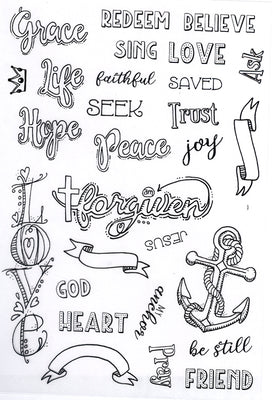 Grace
REDEEM BELIEVE
SING LOVE
Ask
Life
faithful
SAVED
SEEK
Trust
Hope
Peace
joy
LOVE
I am forgiven
JESUS
GOD
MY anchor
HEART
be still
Pray
FRIEND